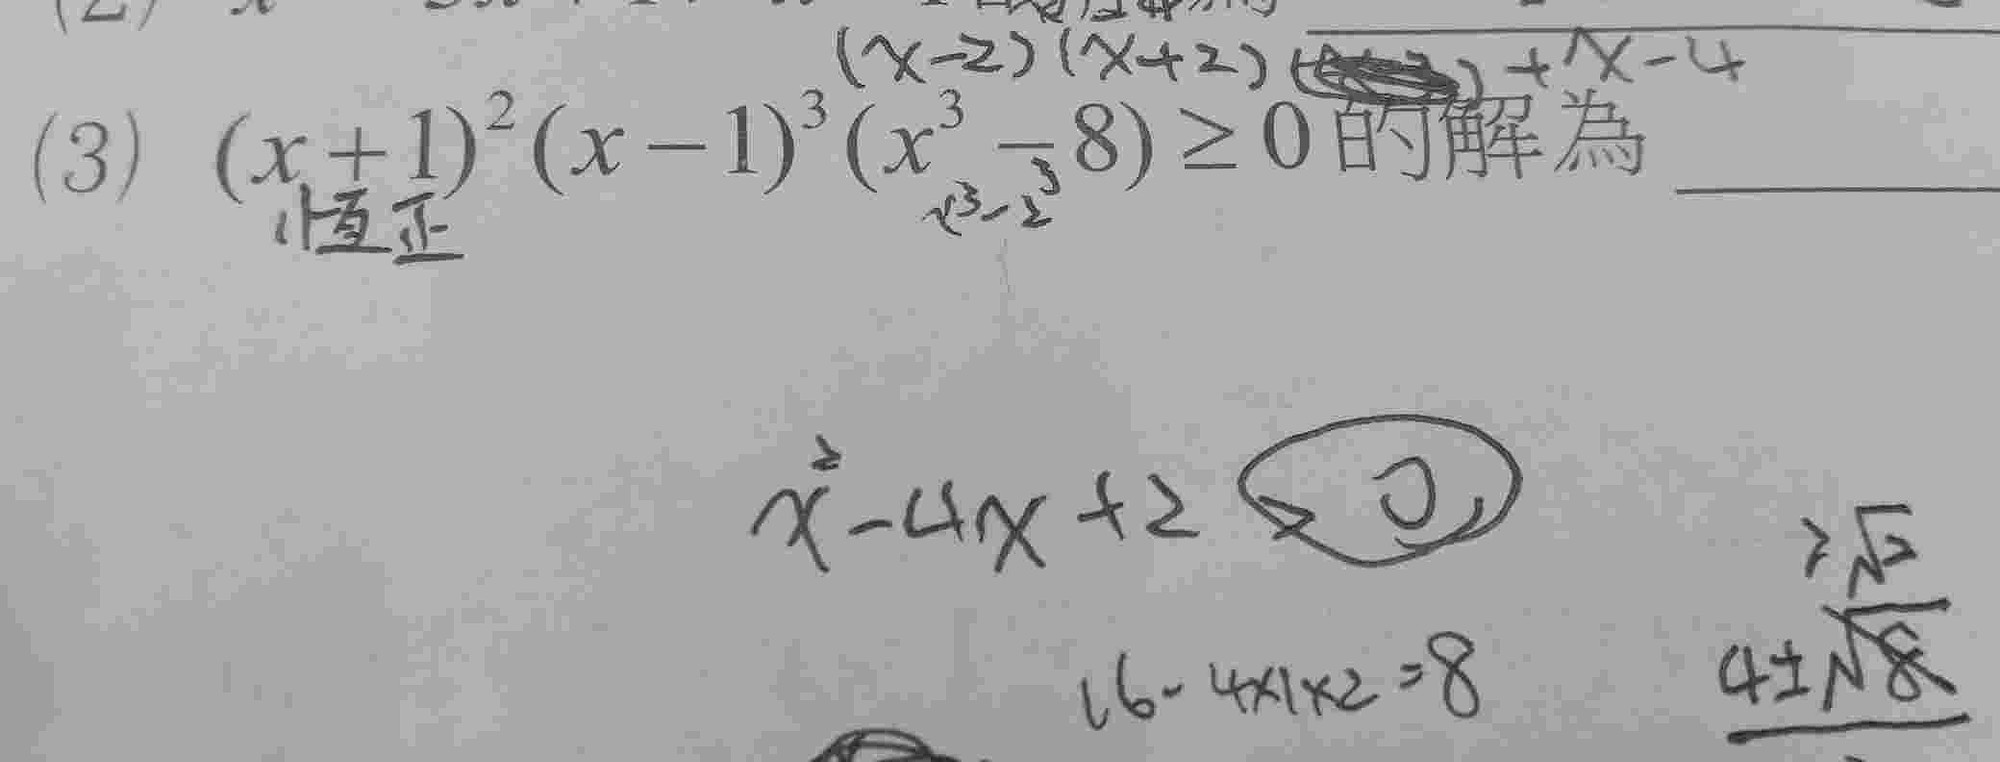 (x-2)(x+2) + x-4
(3) (x+1)²(x-1)³(x³-8)≥0的解為
恒正 x³-2³
x²-4x+2 0
2√2
16-4x1x2=8 4±√8